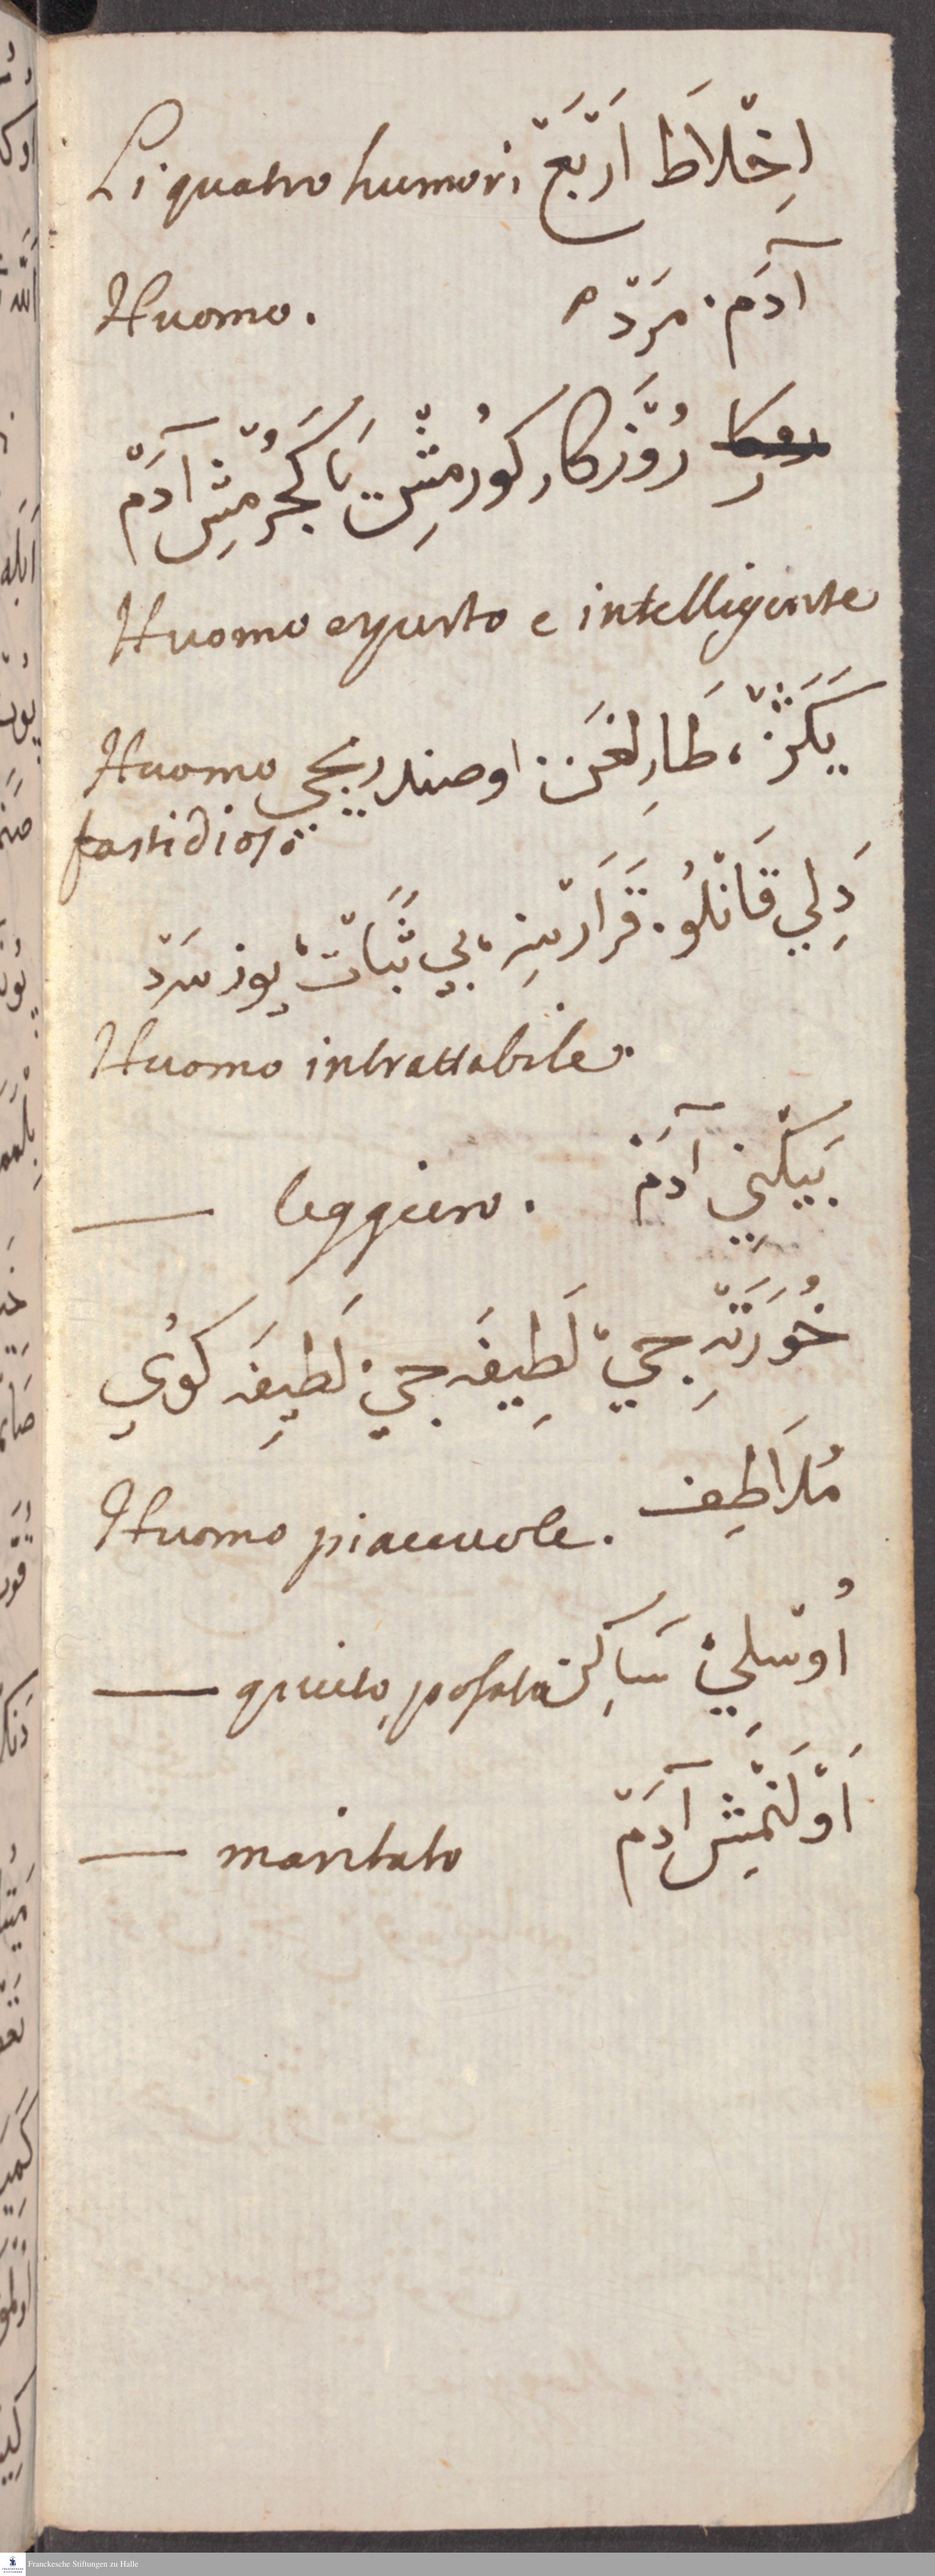 Li quatro humori اِخْلاَطَ اَرْبَعْ
Huomo. آدَم . مَرْدْ
رُوْزَكَار كورُمْشِ يَا كَجُرْمِشْ آدَمْ
Huomo esperto e intelligente
Huomo اوصندريجي
fastidioso
دَلِي قَانْلُو . قَرَارْسِزْ ، بِي ثَبَاتْ ، يوز سَرَدْ
Huomo intrattabile.
— leggiero. بَيَكْنِي آدَمْ
خُورَتَه جِيْ لَطِيفَه جِيْ لَطِيفَه كُوي
Huomo piaceuole. مُلَاطِف
— quieto, posato اُوسْلِيْ سَاكِنْ
— maritato اَوْلَنْمِشْ آدَمْ
Franckesche Stiftungen zu Halle